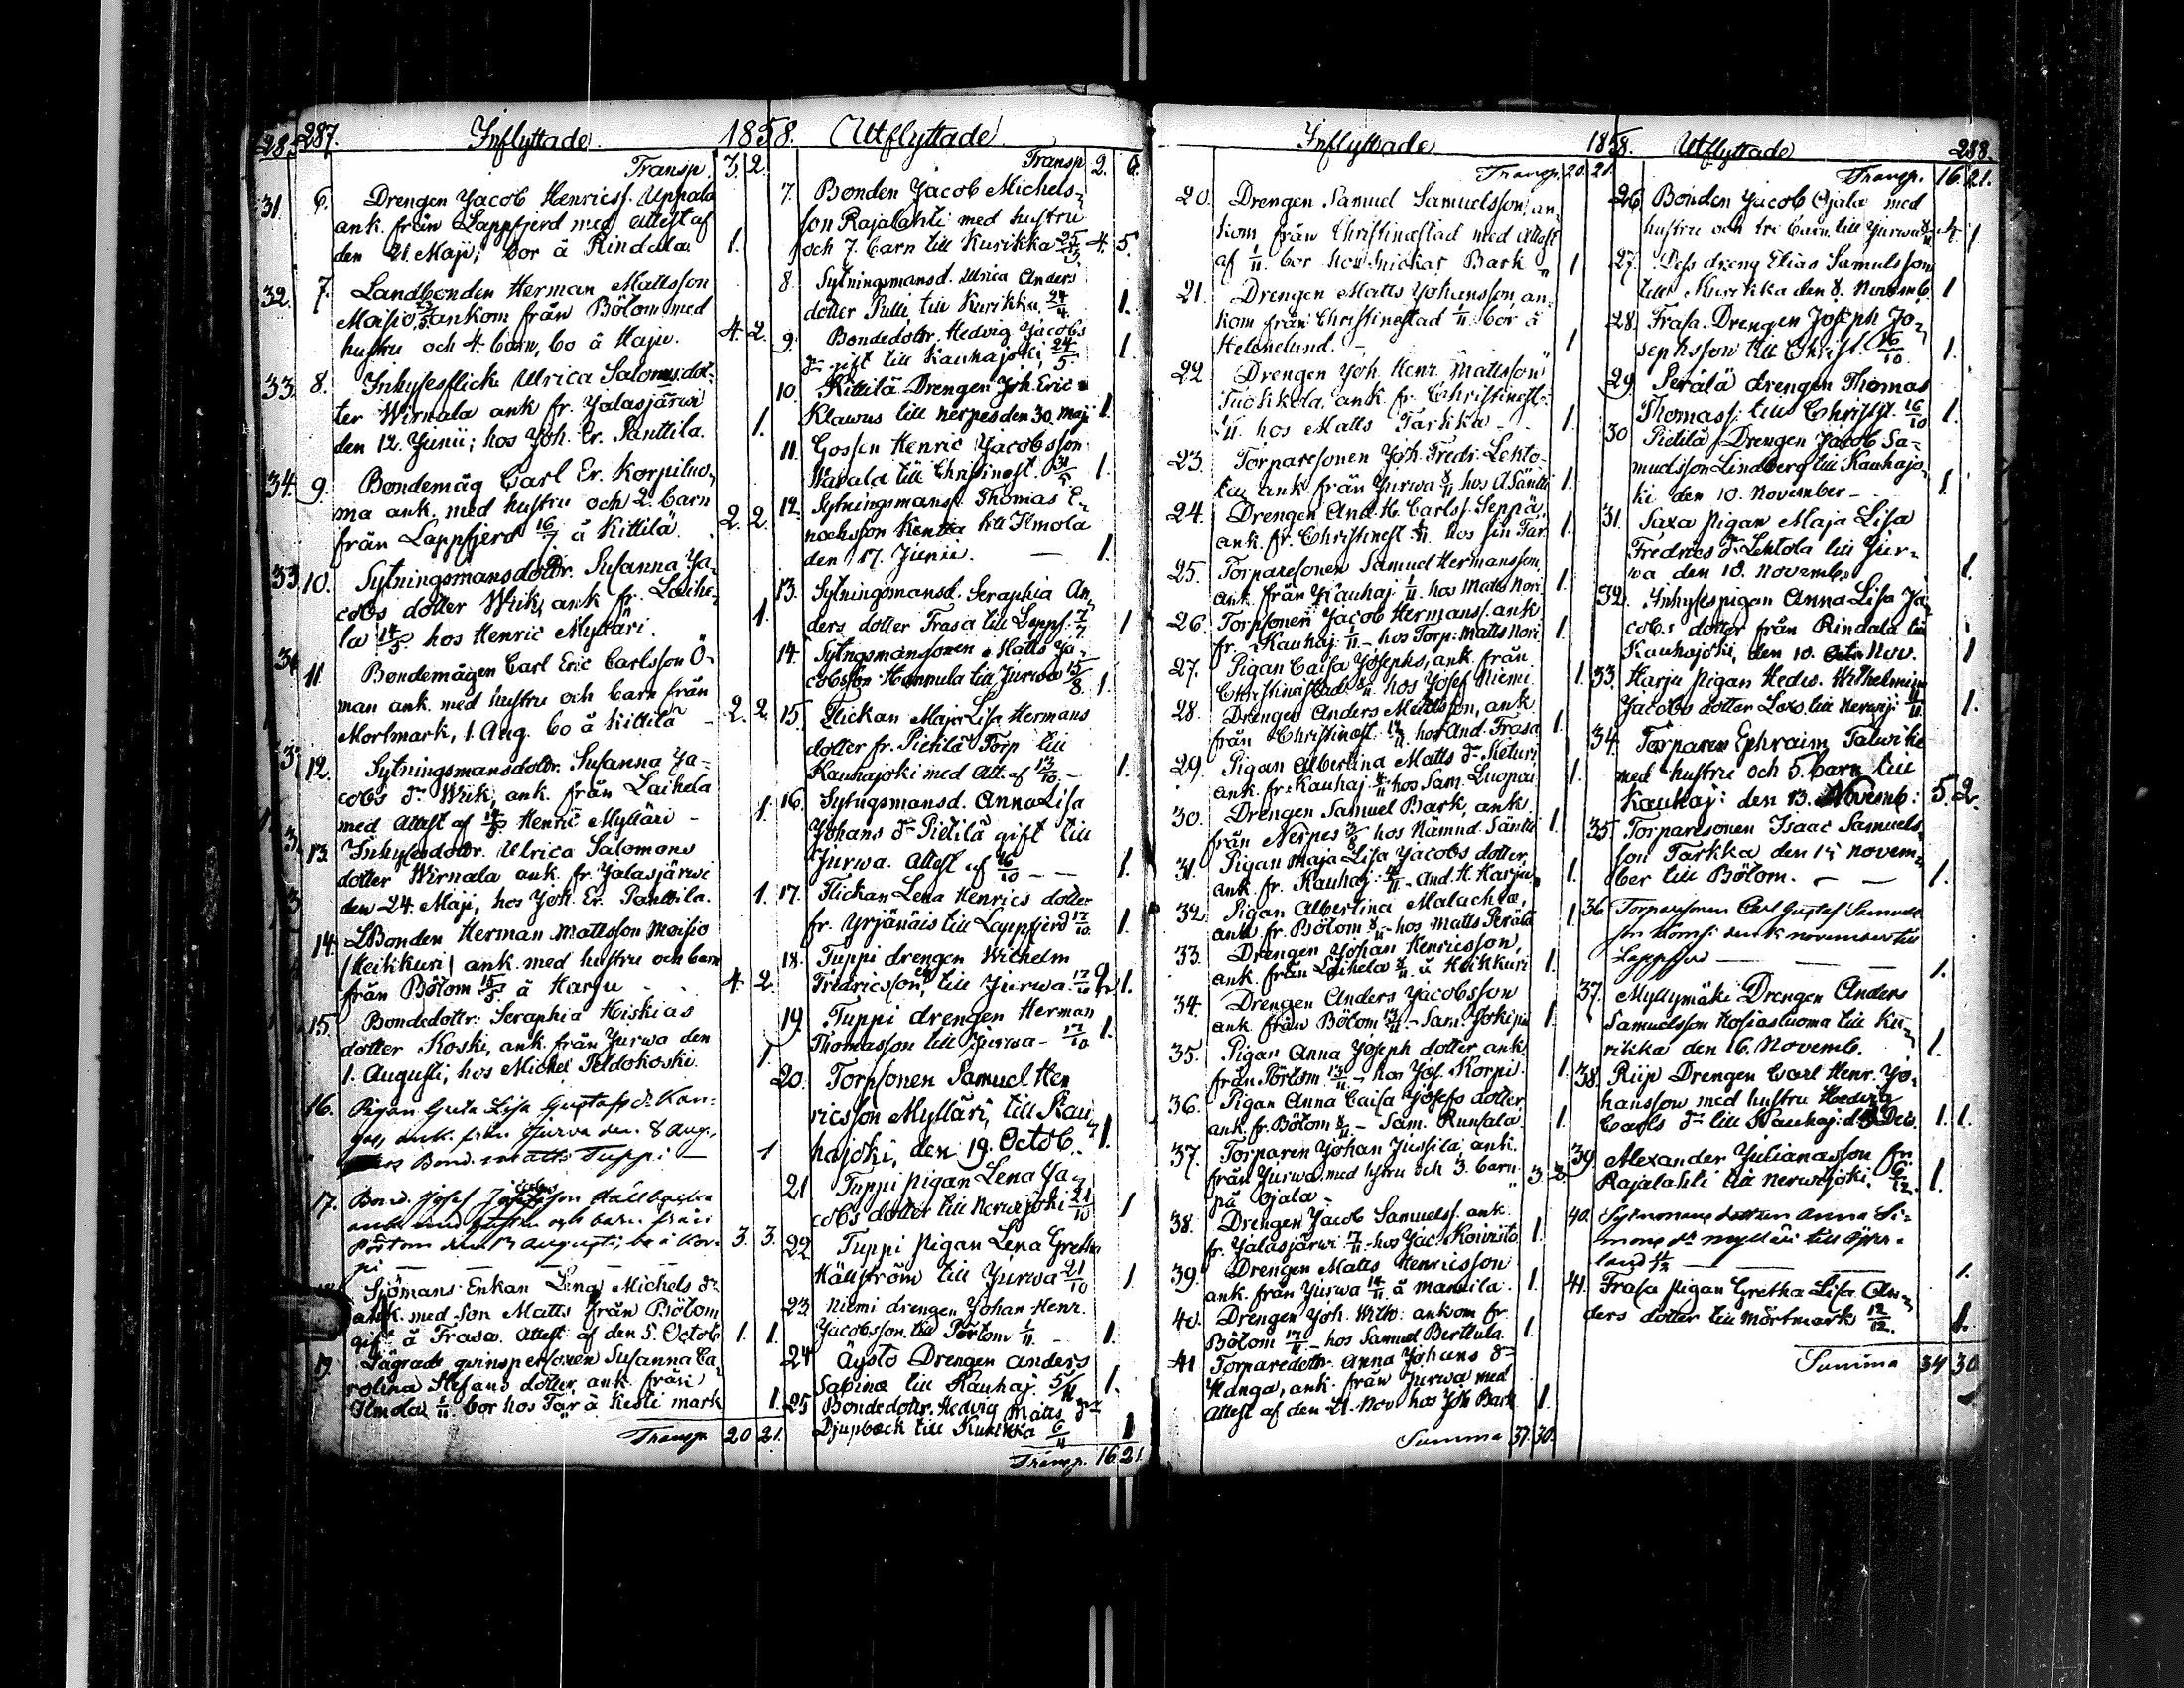 287. Inflyttade 1858. Utflyttade
Transp. 3. 2.
6. Drengen Jacob Henricss. Uppala
ank. från Lappfjerd med attest af
den 21. Maji; bor å Rindala. 1.
7. Landbonden Herman Mattsson
Moisio ankom från Bötom med
hustru och 4. barn, bo å Harju. 4. 2.
8. Inhysesflick. Ulrica Salomons dot-
ter Wirnala ank fr. Jalasjärwi
den 12. Junii; hos Joh. Er. Panttila. 1.
9. Bondemåg Carl Er. Korpiluo-
ma ank. med hustru och 2. barn
från Lappfjerd 16/7 å Kittilä. 2. 2.
10. Sytningsmansdottr. Susanna Ja-
cobs dotter Wiik, ank fr. Laihe-
la 14/5 hos Henric Mylläri. 1.
11. Bondemågen Carl Eric Carlsson Ö-
man ank. med hustru och barn från
Mörtmark, 1. Aug. bo å Kittilä - 2. 2.
12. Sytningsmansdottr. Susanna Ja-
cobs dr Wiik, ank. från Laihela
med attest af 14/5 Henric Mylläri - 1.
13. Inhysesdottr. Ulrica Salomons
dotter Wirnala ank. fr. Jalasjärwi
den 24. Maji, hos Joh. Er. Panttila. 1.
14. LBonden Herman Mattsson Moisio
/Heikkuri/ ank. med hustru och barn
från Bötom 15/5 å Harju 4. 2.
15. Bondedottr. Seraphia Hiskias
dotter Koski, ank. från Jurwa den
1. Augusti, hos Michel Peldokoski. 1.
16. Pigan Greta Lisa Gustafs dr Kan-
gas, ank. från Jurva den 8 Aug.,
hos Bond. Matts Tuppi - 1
17. Bond. Josef
ank. med hustru och barn från
Pörtom den 13 Augusti, bo å Kor-
pi 3. 3.
Sjömans Enkan Lena Michels dr
ank. med son Matts från Bötom
gift å Trasa. Attest af den 5. Octob 1. 1.
19. Lägrade qvinspersonen Susanna Ca-
rolina Stefans dotter ank. från
Ilmola 1/11. bor hos Far å Kesti mark 1.
Transp. 20 21.
Transp. 2. 6.
7. Bonden Jacob Michels-
son Rajalahti med hustru
och 7. barn till Kurikka 25/3 4. 5.
8. Sytningsmansd. Ulrica Anders
dotter Pulli till Kurikka 24/4. 1.
9. Bondedottr. Hedvig Jacobs
dr gift till Kauhajoki 24/5. 1.
10. Kittilä Drengen Joh. Eric
Klawus till Nerpes den 30. Maj 1.
11. Gossen Henric Jacobsson
Warala till Christinest. 1.
12. Sytningsmanss. Thomas E-
nochsson Kentta till Ilmola
den 17. Junii. - 1.
13. Sytningsmansd. Seraphia An-
ders dotter Trasa till Lappf. 7/7 1
14. Sytngsmanssonen Matts Ja-
cobsson Hannula till Jurwa 15/8 1.
15. Flickan Maja Lisa Hermans
dotter fr. Pietilä Torp till
Kauhajoki med Att. af 13/10. - 1.
16. Sytngsmansd. Anna Lisa
Johans dr Pietilä gift till
Jurwa. Attest af 16/10 - - 1.
17. Flickan Lena Henrics dotter
fr. Yrjänäis till Lappfjerd 17/10. 1.
18. Tuppi drengen Wilhelm
Fredricsson, till Jurwa. 17/10 1.
19. Tuppi drengen Herman
Thomasson till Jurwa - 17/10 1.
20. Torpsonen Samuel Hen
ricsson Mylläri, till Kau
hajoki, den 19. Octob. 1.
21 Tuppi pigan Lena Ja-
cobs dotter till Nerwijoki 21/10 1
22 Tuppi pigan Lena Gretha
Hällström till Jurwa 21/10 1
23 Niemi drengen Johan Henr.
Jacobsson till Pörtom 1/11 - 1.
24 Äysto Drengen Anders
Sabina till Kauhaj. 5/11 1.
25 Bondedottr. Hedvig Matts dr
Djupbeck till Kurikka 6/11 1
Transp. 16. 21.
Inflyttade 1858. Utflyttade 288.
Transp. 20. 21.
20. Drengen Samuel Samuelsson, an-
kom från Christinestad med attest
af 1/11. bor hos Snickar Bark 1
21. Drengen Matts Johansson, an-
kom från Christinestad 1/11. bor å
Helenelund. - 1
22 Drengen Joh. Henr. Mattsson
Tuokkola, ank. fr. Christinest.
1/11. hos Matts Tarkka - 1.
23. Torparesonen Joh. Fredr. Lehto-
la, ank från Jurwa 8/11 hos A Säntti 1.
24. Drengen And. H. Carlss. Seppä,
ank. fr. Christinest. 1/11. hos sin Far. 1.
25. Torparesonen Samuel Hermansson,
ank. från Kauhaj. 1/11. hos Matts Nori 1.
26. Torpsonen Jacob Hermanss. ank
fr. Kauhaj. 1/11 - hos Torp: Matts Nori 1.
27. Pigan Caisa Josephs, ank. från
Christinestad 8/11 hos Josef Niemi 1.
28. Drengen Anders Mattsson, ank
från Christinest. hos And. Trasa 1.
29. Pigan Albertina Matts dr Keturi,
ank. fr. Kauhaj. hos Sam. Luoma 1.
30. Drengen Samuel Bark, ank
från Nerpes hos Nämnd. Säntti 1.
31. Pigan Maja Lisa Jacobs dotter,
ank. fr. Kauhaj. - And. H. Harju 1.
32. Pigan Albertina Malachta,
ank. fr. Bötom 8/11 - hos Matts Perälä 1
33. Drengen Johan Henricsson,
ank. från Laihela å Heikkuri 1.
34. Drengen Anders Jacobsson
ank. från Bötom 13/11 - Sam. Jokipii 1
35. Pigan Anna Joseph dotter ank.
från Pörtom 13/11 - hos Jos. Korpi 1
36. Pigan Anna Caisa Josefs dotter
ank. fr. Bötom 8/11 - Sam. Runsala 1.
37. Torparen Johan Jussila, ank.
från Jurwa med hstru och 3. barn
på Ojala - 3. 3.
38. Drengen Jacob Samuelss. ank.
fr. Jalasjärwi 17/11 - hos Jac. Koivisto 1.
39. Drengen Matts Henricsson
ank. från Jurwa 14/11 å Mansila. 1.
40. Drengen Joh. Wilh: ankom fr.
Bötom 17/11 - hos Samuel Berttula 1.
41 Torparedottr. Anna Johans dr
Kanga, ank. från Jurwa med
attest af den 21. Nov. hos Joh Bark 1.
Summa 37. 30.
Transp. 16. 21.
26 Bonden Jacob Ojala med
hustru och tre barn, till Jurwa 4. 1
27. Dess dreng Elias Samulsson
till Kurikka den 8. Novemb. 1
28. Trasa. Drengen Joseph Jo-
sephsson till Christ. 16/10. 1.
29. Perälä drengen Thomas
Thomass. till Christst. 16/10 1.
30 Pietilä Drengen Jacob Sa-
muelsson Lindberg till Kauhajo-
ki den 10. November - 1.
31. Saxa pigan Maja Lisa
Fredrics dr Lehtola till Jur-
wa den 10. Novemb. 1.
32. Inhysespigan Anna Lisa Ja-
cobs dotter från Rindala till
Kauhajoki, den 10. Nov. 1
33. Harju pigan Hedw. Wilhelmina
Jacobs dotter till Nerwij. 1.
34. Torparen Ephraim Talwitie
med hustru och 5. barn till
Kauhaj: den 13. Novemb: 5. 2.
35. Torparesonen Isaac Samuels-
son Tarkka den 15 novem-
ber till Bötom. - - 1.
36. Torparsonen Carl Gustaf Samuels
son den 15 november till
Lappfjerd 1.
37. Myllymäki Drengen Anders
Samuelsson Hosiasluoma till Ku-
rikka den 16. Novemb. 1.
38. Riip Drengen Carl Henr. Jo-
hansson med hustru Hedwig
Carls dr till Kauhaj: d. 5 Dec. 1. 1.
39 Alexander Julianasson fr.
Rajalahti till Nerwijoki. 6/12. 1.
40. Sytnmans dottren Anna Si-
mons dr Mylläri till Öfver-
1.
41. Trasa pigan Gretha Lisa An-
ders dotter till Mörtmark 12/12. 1.
Summa 34 30